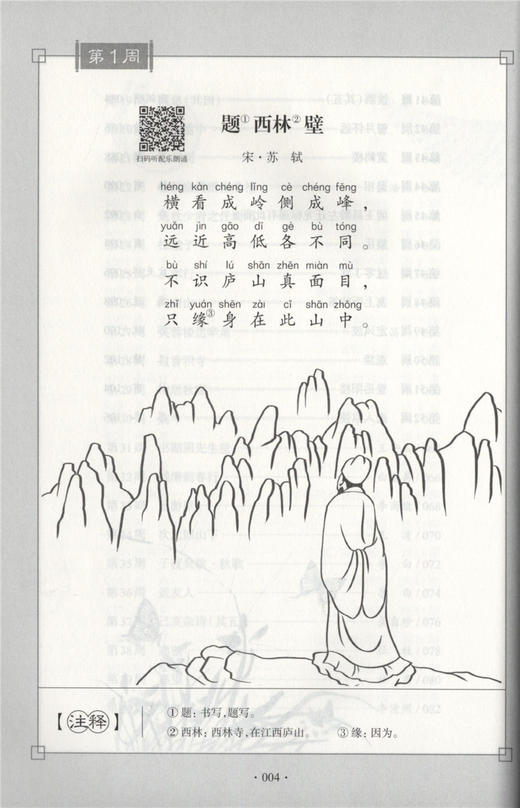 第1周
题①西林②壁
扫码听配乐朗诵
宋·苏轼
héng kàn chéng lǐng cè chéng fēng
横看成岭侧成峰，
yuǎn jìn gāo dī gè bù tóng
远近高低各不同。
bù shí lú shān zhēn miàn mù
不识庐山真面目，
zhǐ yuán shēn zài cǐ shān zhōng
只缘③身在此山中。
【注释】
①题：书写，题写。
②西林：西林寺，在江西庐山。 ③缘：因为。
·004·